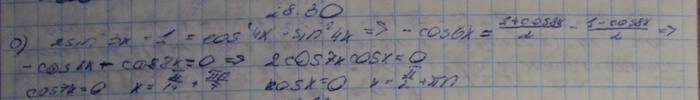 28.30
б) 2sin²3x - 1 = cos²4x - sin²4x => - cos6x = (1+cos8x)/2 - (1-cos8x)/2 =>
-cos6x - cos8x = 0 => 2cos7x cosx = 0
cos7x = 0 x = π/14 + πn/7 cosx = 0 x = π/2 + πn